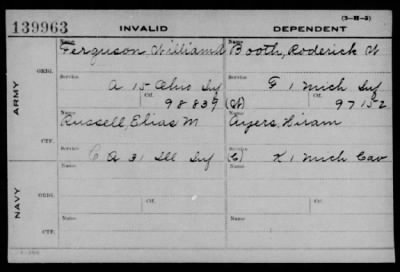 (3-H-3)
139963 INVALID DEPENDENT
Name Name
Ferguson, William R Booth, Roderick W
ORIG.
Service Service
A 15 Ohio Inf F 1 Mich Inf
Ctf. Ctf.
98839 (W) 97152
ARMY
Name Name
Russell, Elias M Ayers, Hiram
CTF.
Service Service
C A 31 Ill Inf (C) K 1 Mich Cav
NAVY
Name Name
ORIG.
Ctf. Ctf.
Name Name
CTF.